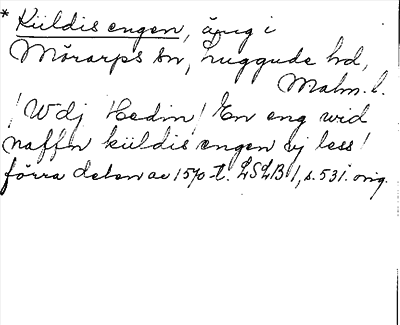 * Küldis engen, äng i
Mörarps sn, Luggude hd,
Malm. l.
! Wdj Hedin! En eng wid
naffn küldis engen ij less!
förra delen av 1570-t. LSLB 1, s. 531. orig.